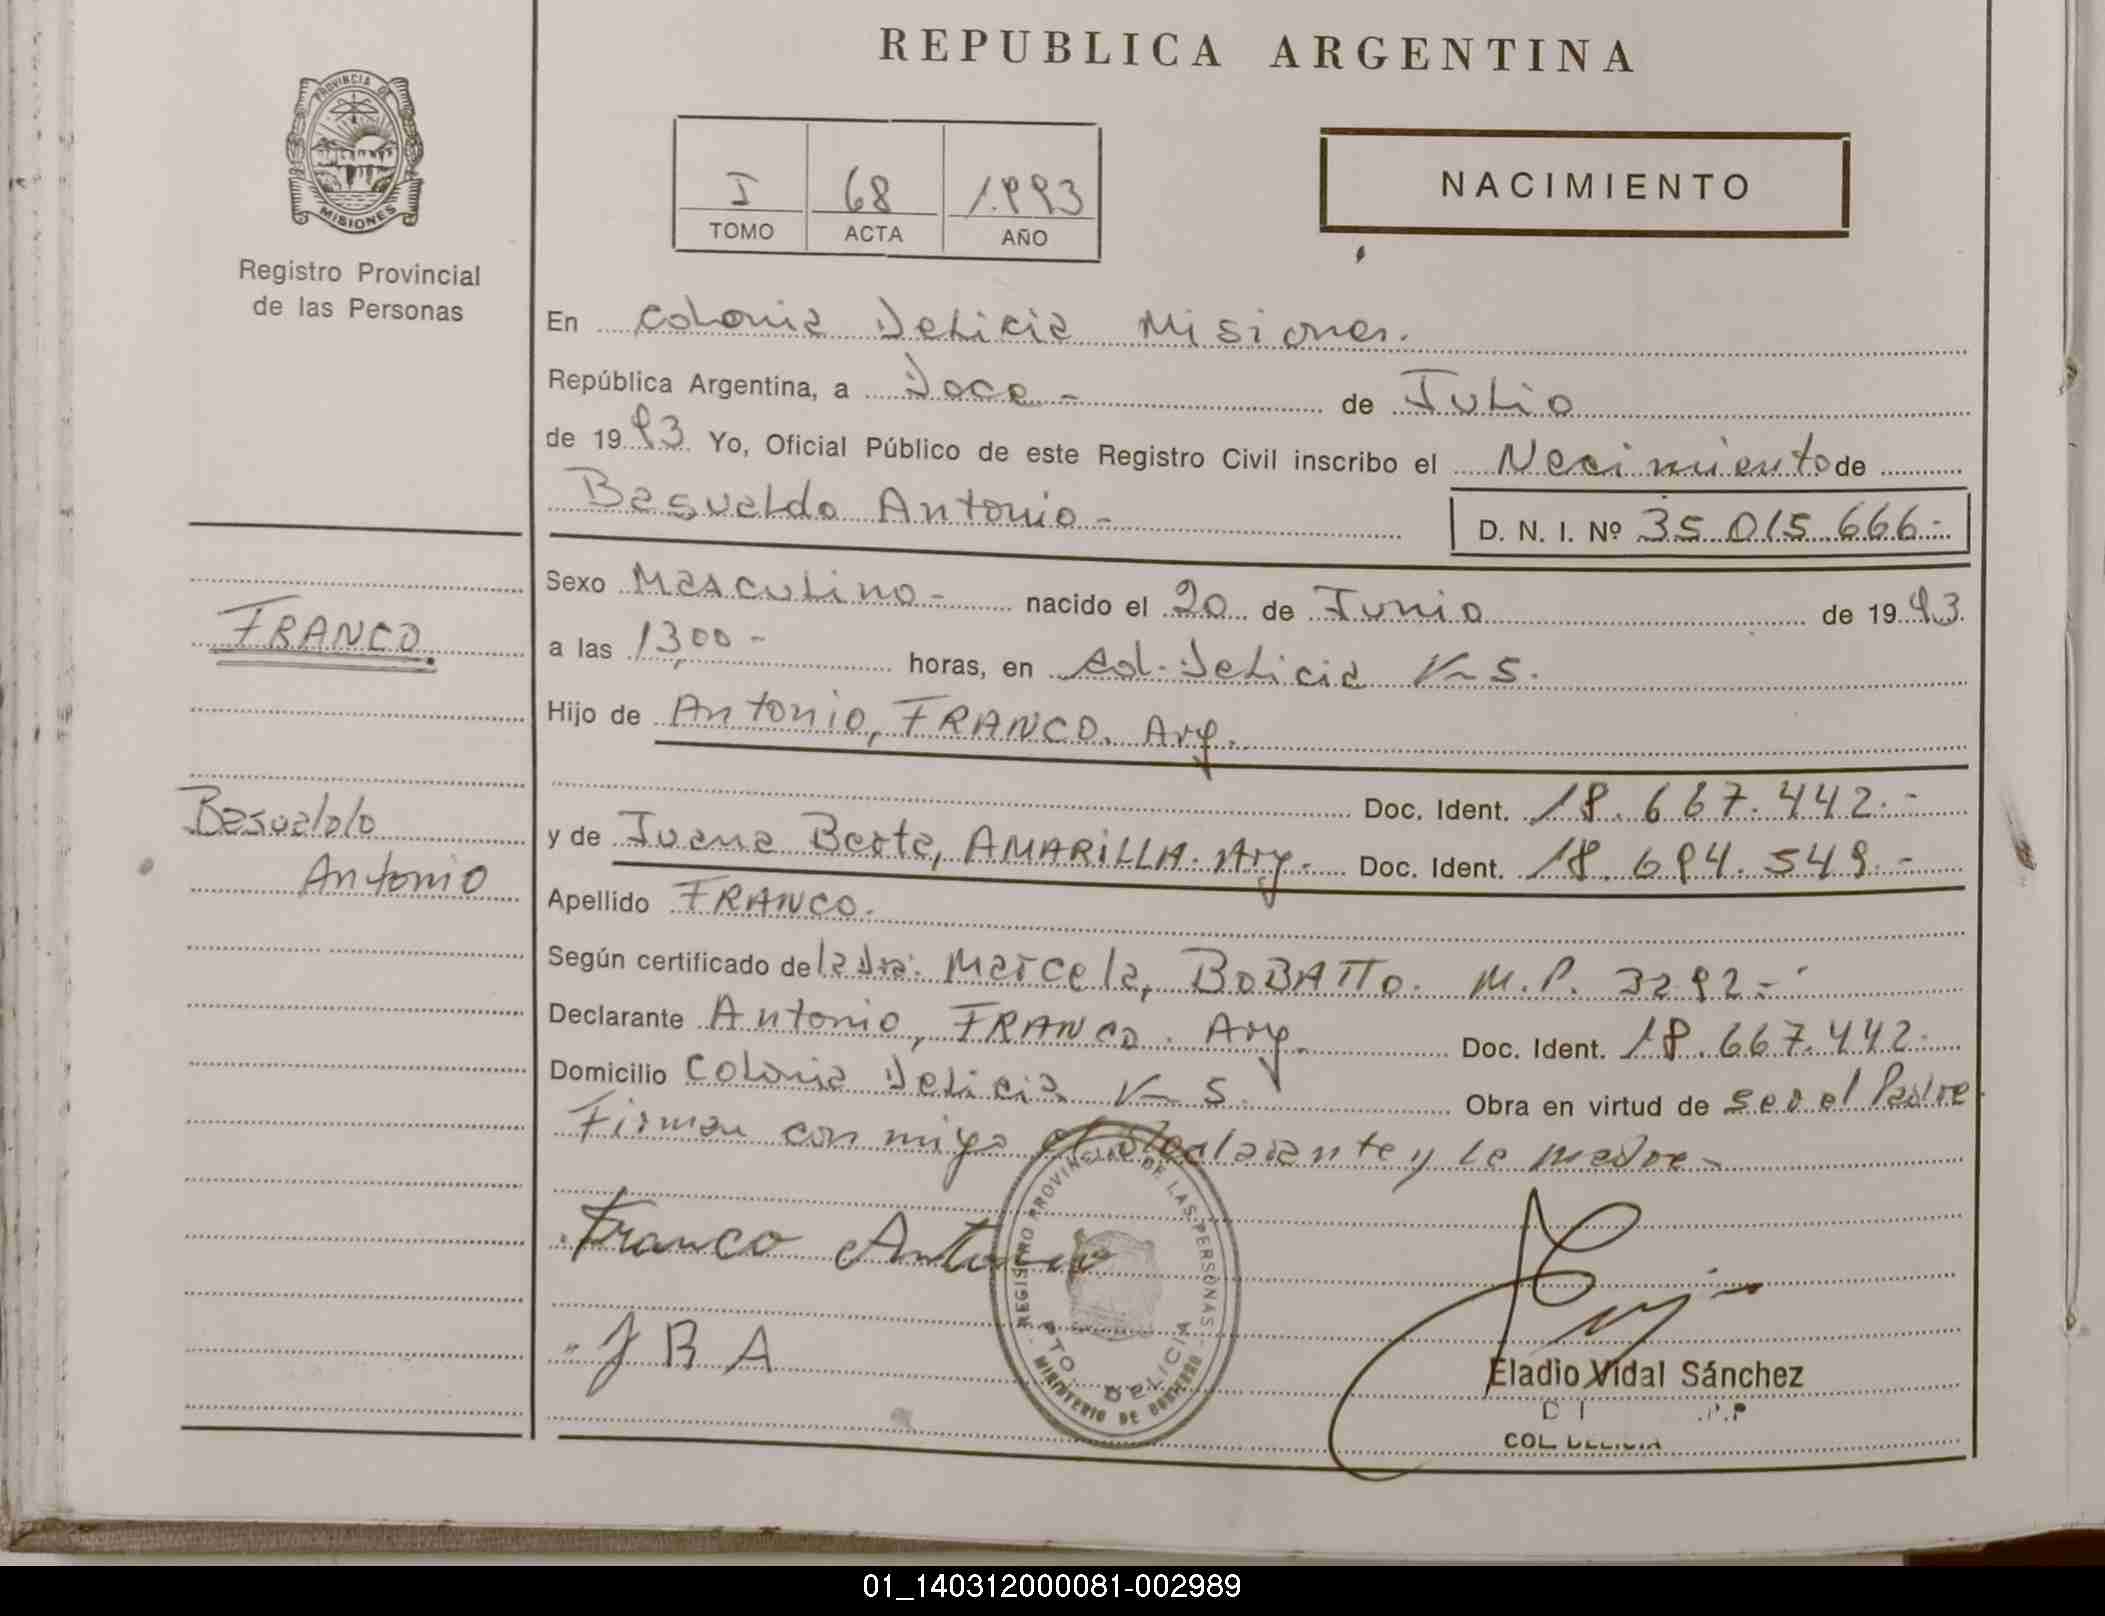 REPUBLICA ARGENTINA
PROVINCIA DE
MISIONES
Registro Provincial
de las Personas
I 68 1.993
TOMO ACTA AÑO
NACIMIENTO
En Colonia Delicia Misiones.
República Argentina, a Doce - de Julio
de 1993 Yo, Oficial Público de este Registro Civil inscribo el Nacimiento de
Basualdo Antonio - D. N. I. Nº 35.015.666.-
Sexo Masculino - nacido el 20 de Junio de 1993.
a las 13,00 - horas, en Col. Delicia
Hijo de Antonio, FRANCO. Arg.
Doc. Ident. 18.667.442.-
y de Juana Berta, AMARILLA. Arg. Doc. Ident. 18.694.549.-
Apellido FRANCO.
Según certificado de la Dra. Marcela, BOBATTO. M.P. 3292.-
Declarante Antonio, FRANCO. Arg. Doc. Ident. 18.667.442.
Domicilio Colonia Delicia Obra en virtud de ser el Padre
Firman con migo el declarante y la madre -
Franco Antonio
J B A
REGISTRO PROVINCIAL DE LAS PERSONAS
PTO. DELICIA
MINISTERIO DE GOBIERNO
Eladio Vidal Sánchez
COL. DELICIA
FRANCO
Basualdo
Antonio
01_140312000081-002989